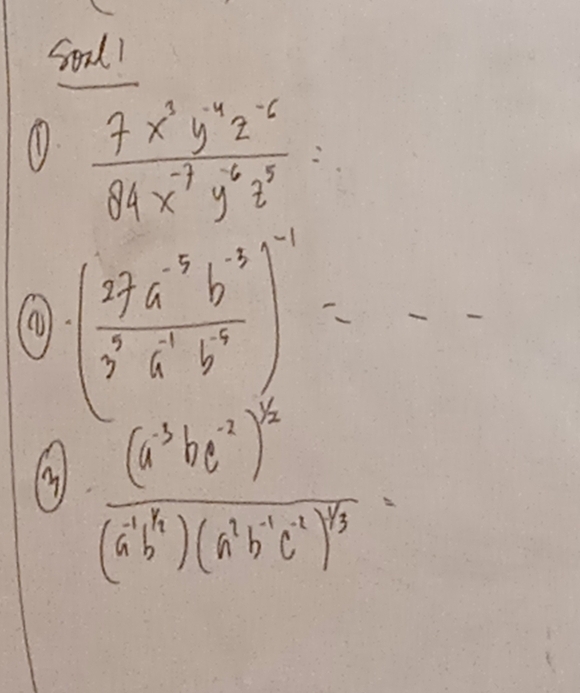 Soal 1
① 7 x³ y⁻⁴ z⁻⁶
84 x⁻⁷ y⁻⁶ z⁵ =
② (27 a⁻⁵ b⁻³
3⁵ a⁻¹ b⁻⁵)⁻¹ = - -
③ (a⁻³ b c⁻²)^½
(a⁻¹ b^½) (a² b⁻¹ c⁻²)^⅓ =